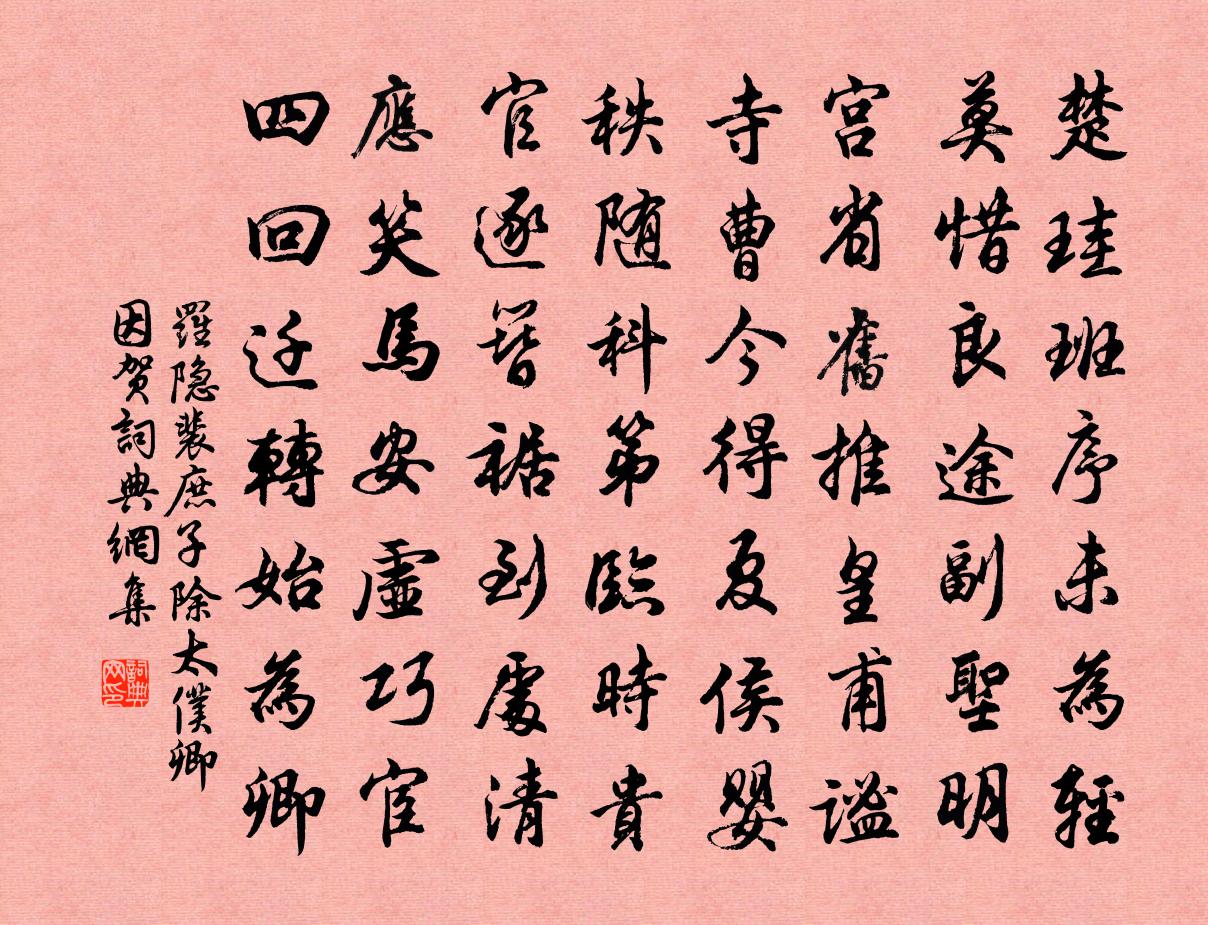 楚珪班序未為輕
莫惜良途副聖明
宮省舊推皇甫謐
寺曹今得夏侯嬰
秩随科第臨時貴
官逐簪裾到處清
應笑馬安虛巧宦
四回迁轉始為卿
羅隐裴庶子除太僕卿
因贺詞典網集
詞典网印